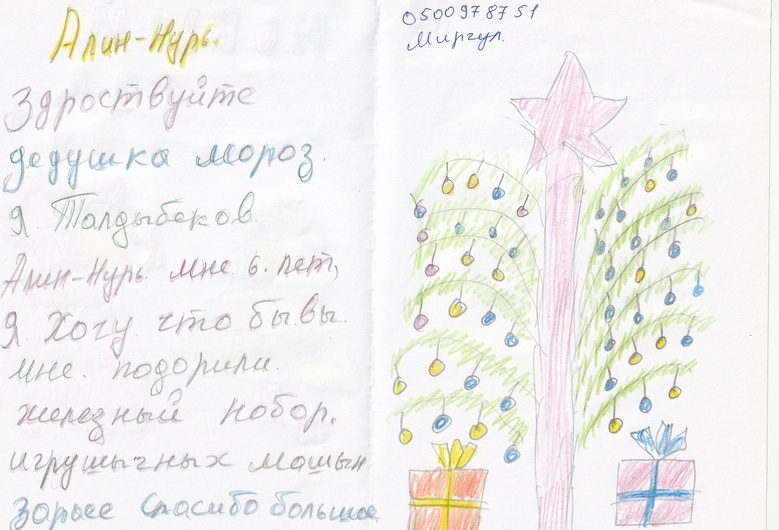 Алин-Нурь.
Здроствуйте
дедушка мороз.
Я. Толдыбеков
Алин-Нурь. мне 6. лет,
Я. Хочу что бы.вы.
мне. подорили.
железный нобор.
игрушычных мошын
Зорьее спасибо большое
0500978751
Миргул.